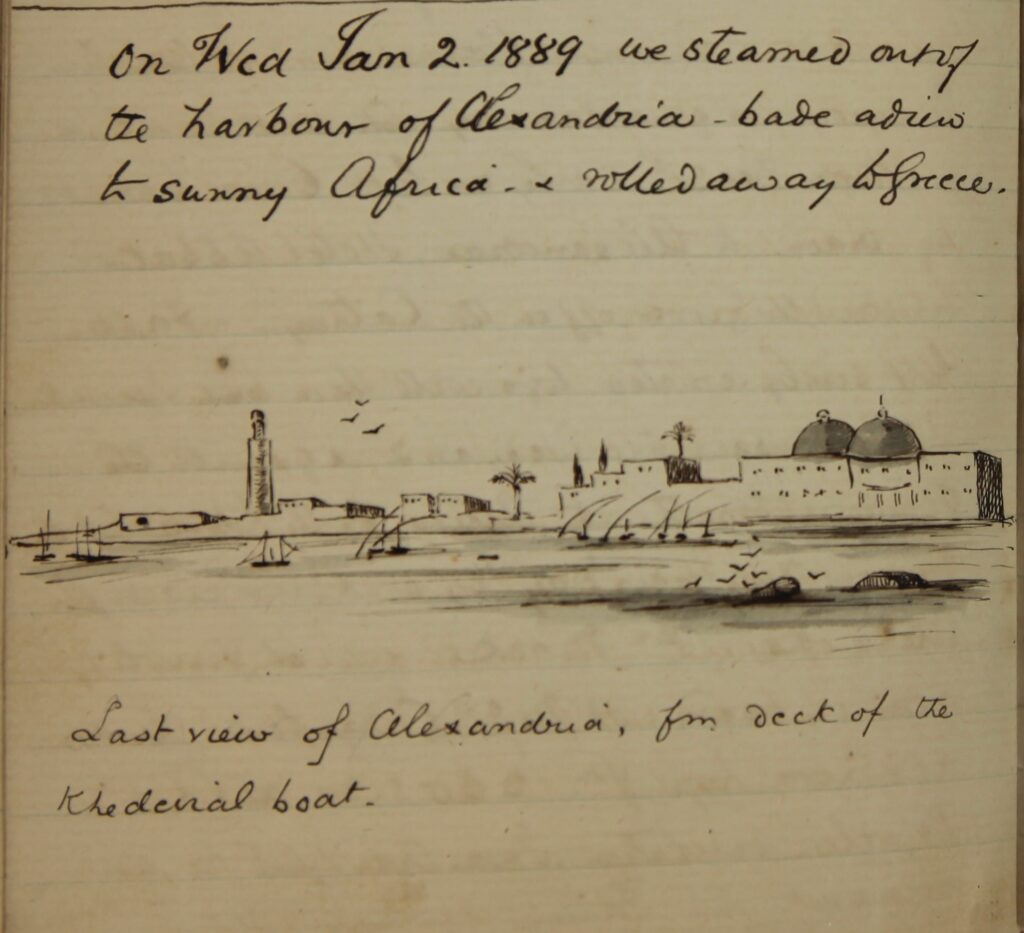 On Wed Jan 2. 1889 we steamed out of
the harbour of Alexandria - bade adieu
to sunny Africa - & rolled away to Greece.
Last view of Alexandria, fm deck of the
Khedevial boat.